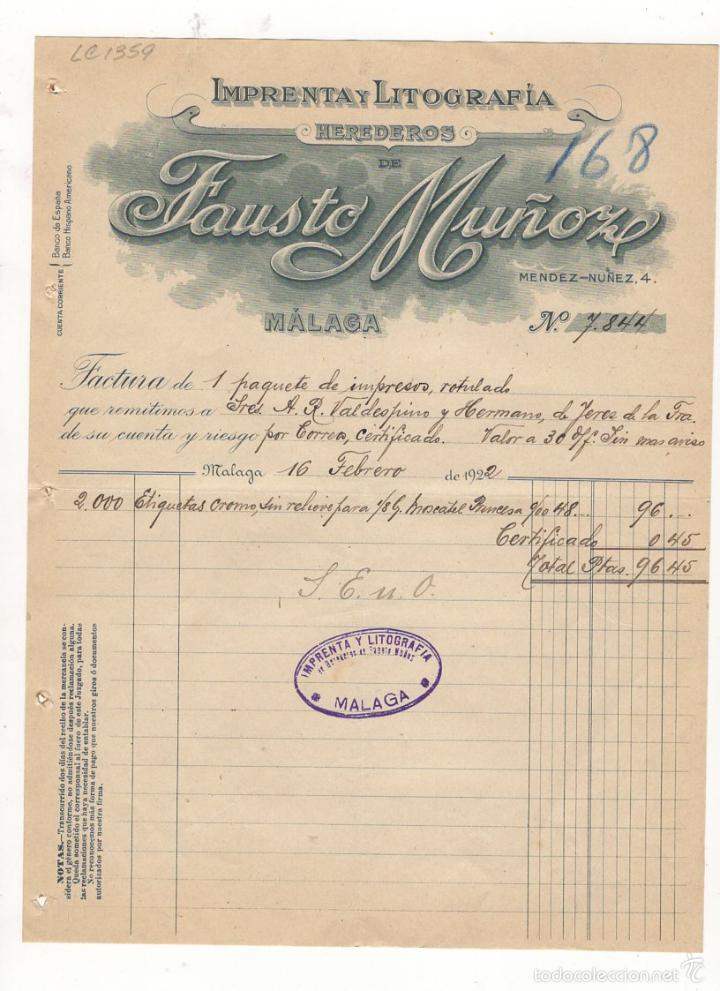 LC 1359
IMPRENTA Y LITOGRAFÍA
HEREDEROS
DE
168
Fausto Muñoz
MENDEZ-NUÑEZ, 4.
MÁLAGA
Nº 7.844
CUENTA CORRIENTE
Banco de España
Banco Hispano Americano
Factura de 1 paquete de impresos, rotulado
que remitimos a Sres. A. R. Valdespino y Hermano, de Jerez de la Fra.
de su cuenta y riesgo por Correo, certificado. Valor a 30 d/f. Sin mas aviso
Malaga 16 Febrero de 1922
2.000 Etiquetas cromo, sin relieve para Moscatel Princesa 48... 96...
Certificado 0 45
Total Ptas. 96 45
S. E. u O.
IMPRENTA Y LITOGRAFÍA
de Herederos de Fausto Muñoz
MALAGA
NOTAS.—Transcurrido dos días del recibo de la mercancía se con-
sidera el género conforme, no admitiéndose después reclamación alguna.
Queda sometido el corresponsal al fuero de este Juzgado, para todas
las reclamaciones que haya necesidad de entablar.
No reconocemos más forma de pago que nuestros giros ó documentos
autorizados por nuestra firma.
todocoleccion.net